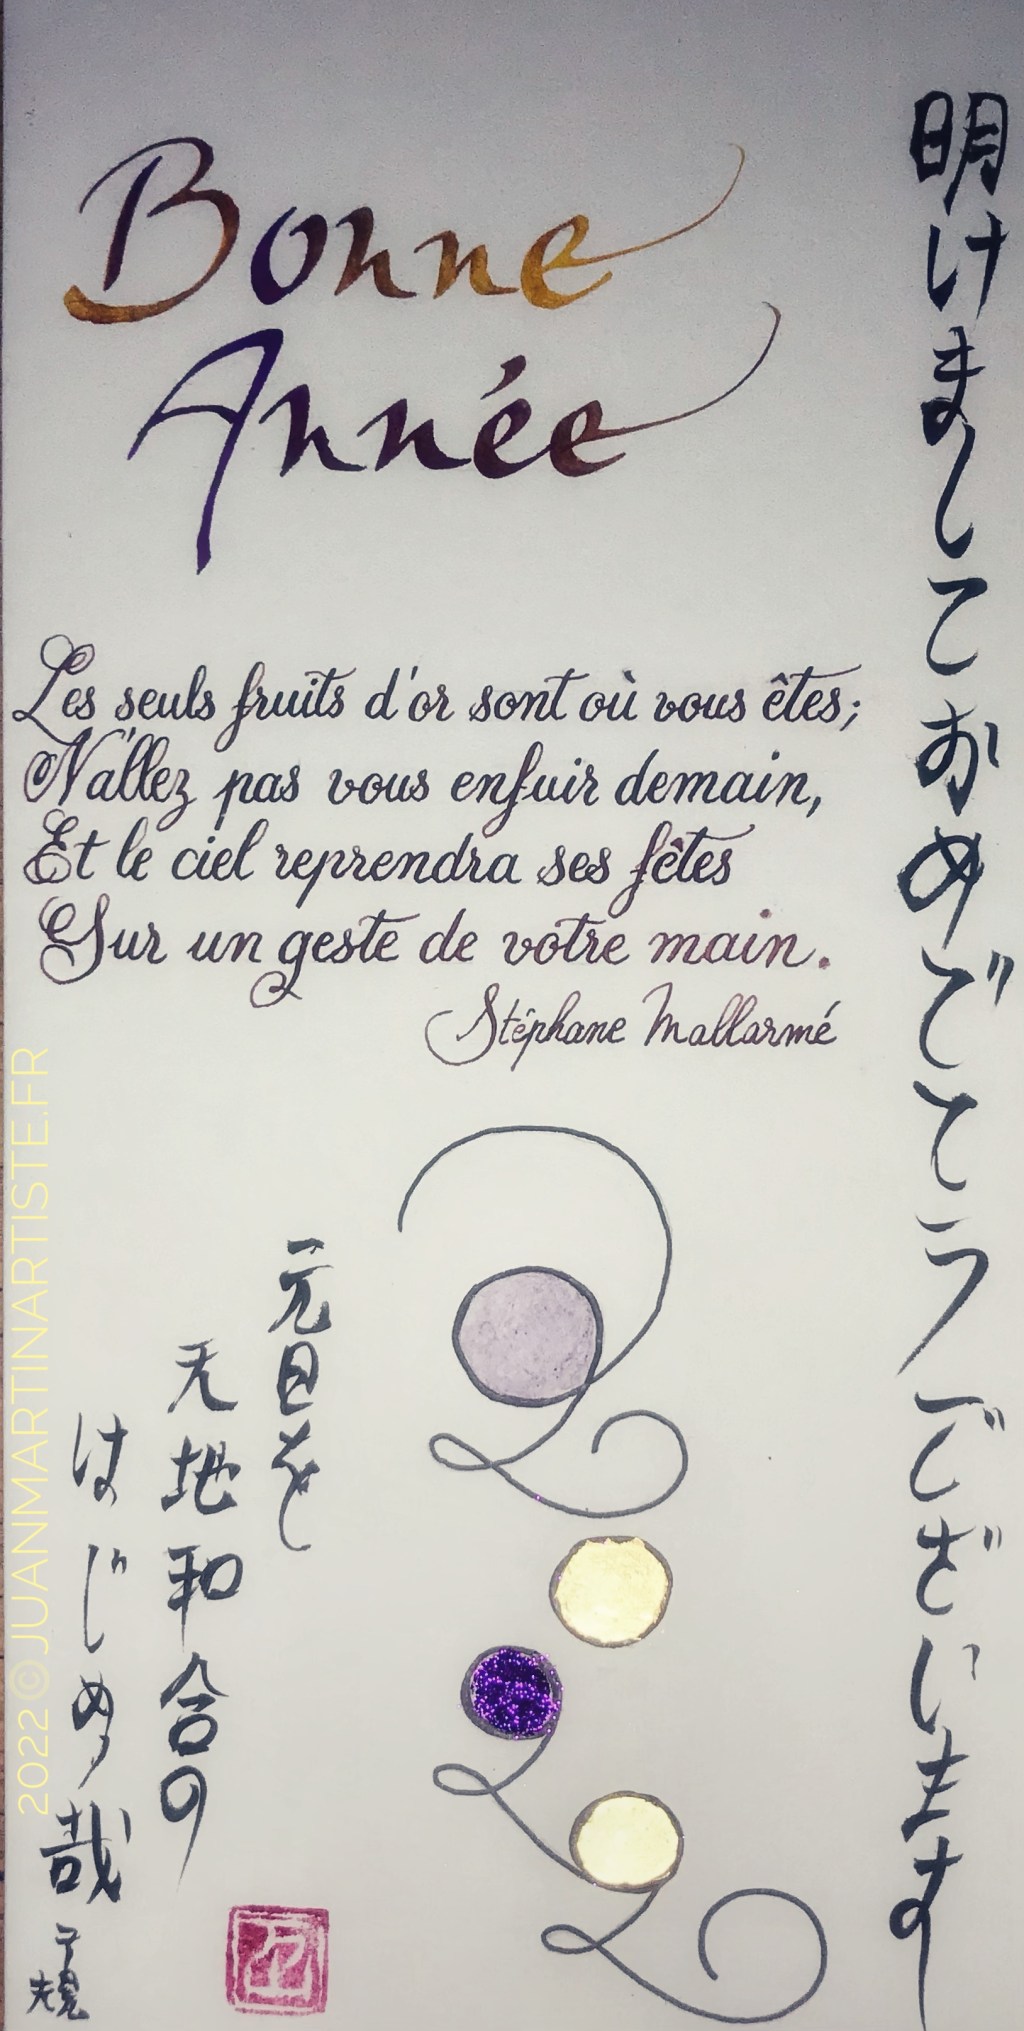 Bonne
Année
Les seuls fruits d'or sont où vous êtes;
N'allez pas vous enfuir demain,
Et le ciel reprendra ses fêtes
Sur un geste de votre main.
Stéphane Mallarmé
明けましておめでとうございます
元日や
天地和合の
はじめ哉
子規
2022
2022©JUANMARTINARTISTE.FR